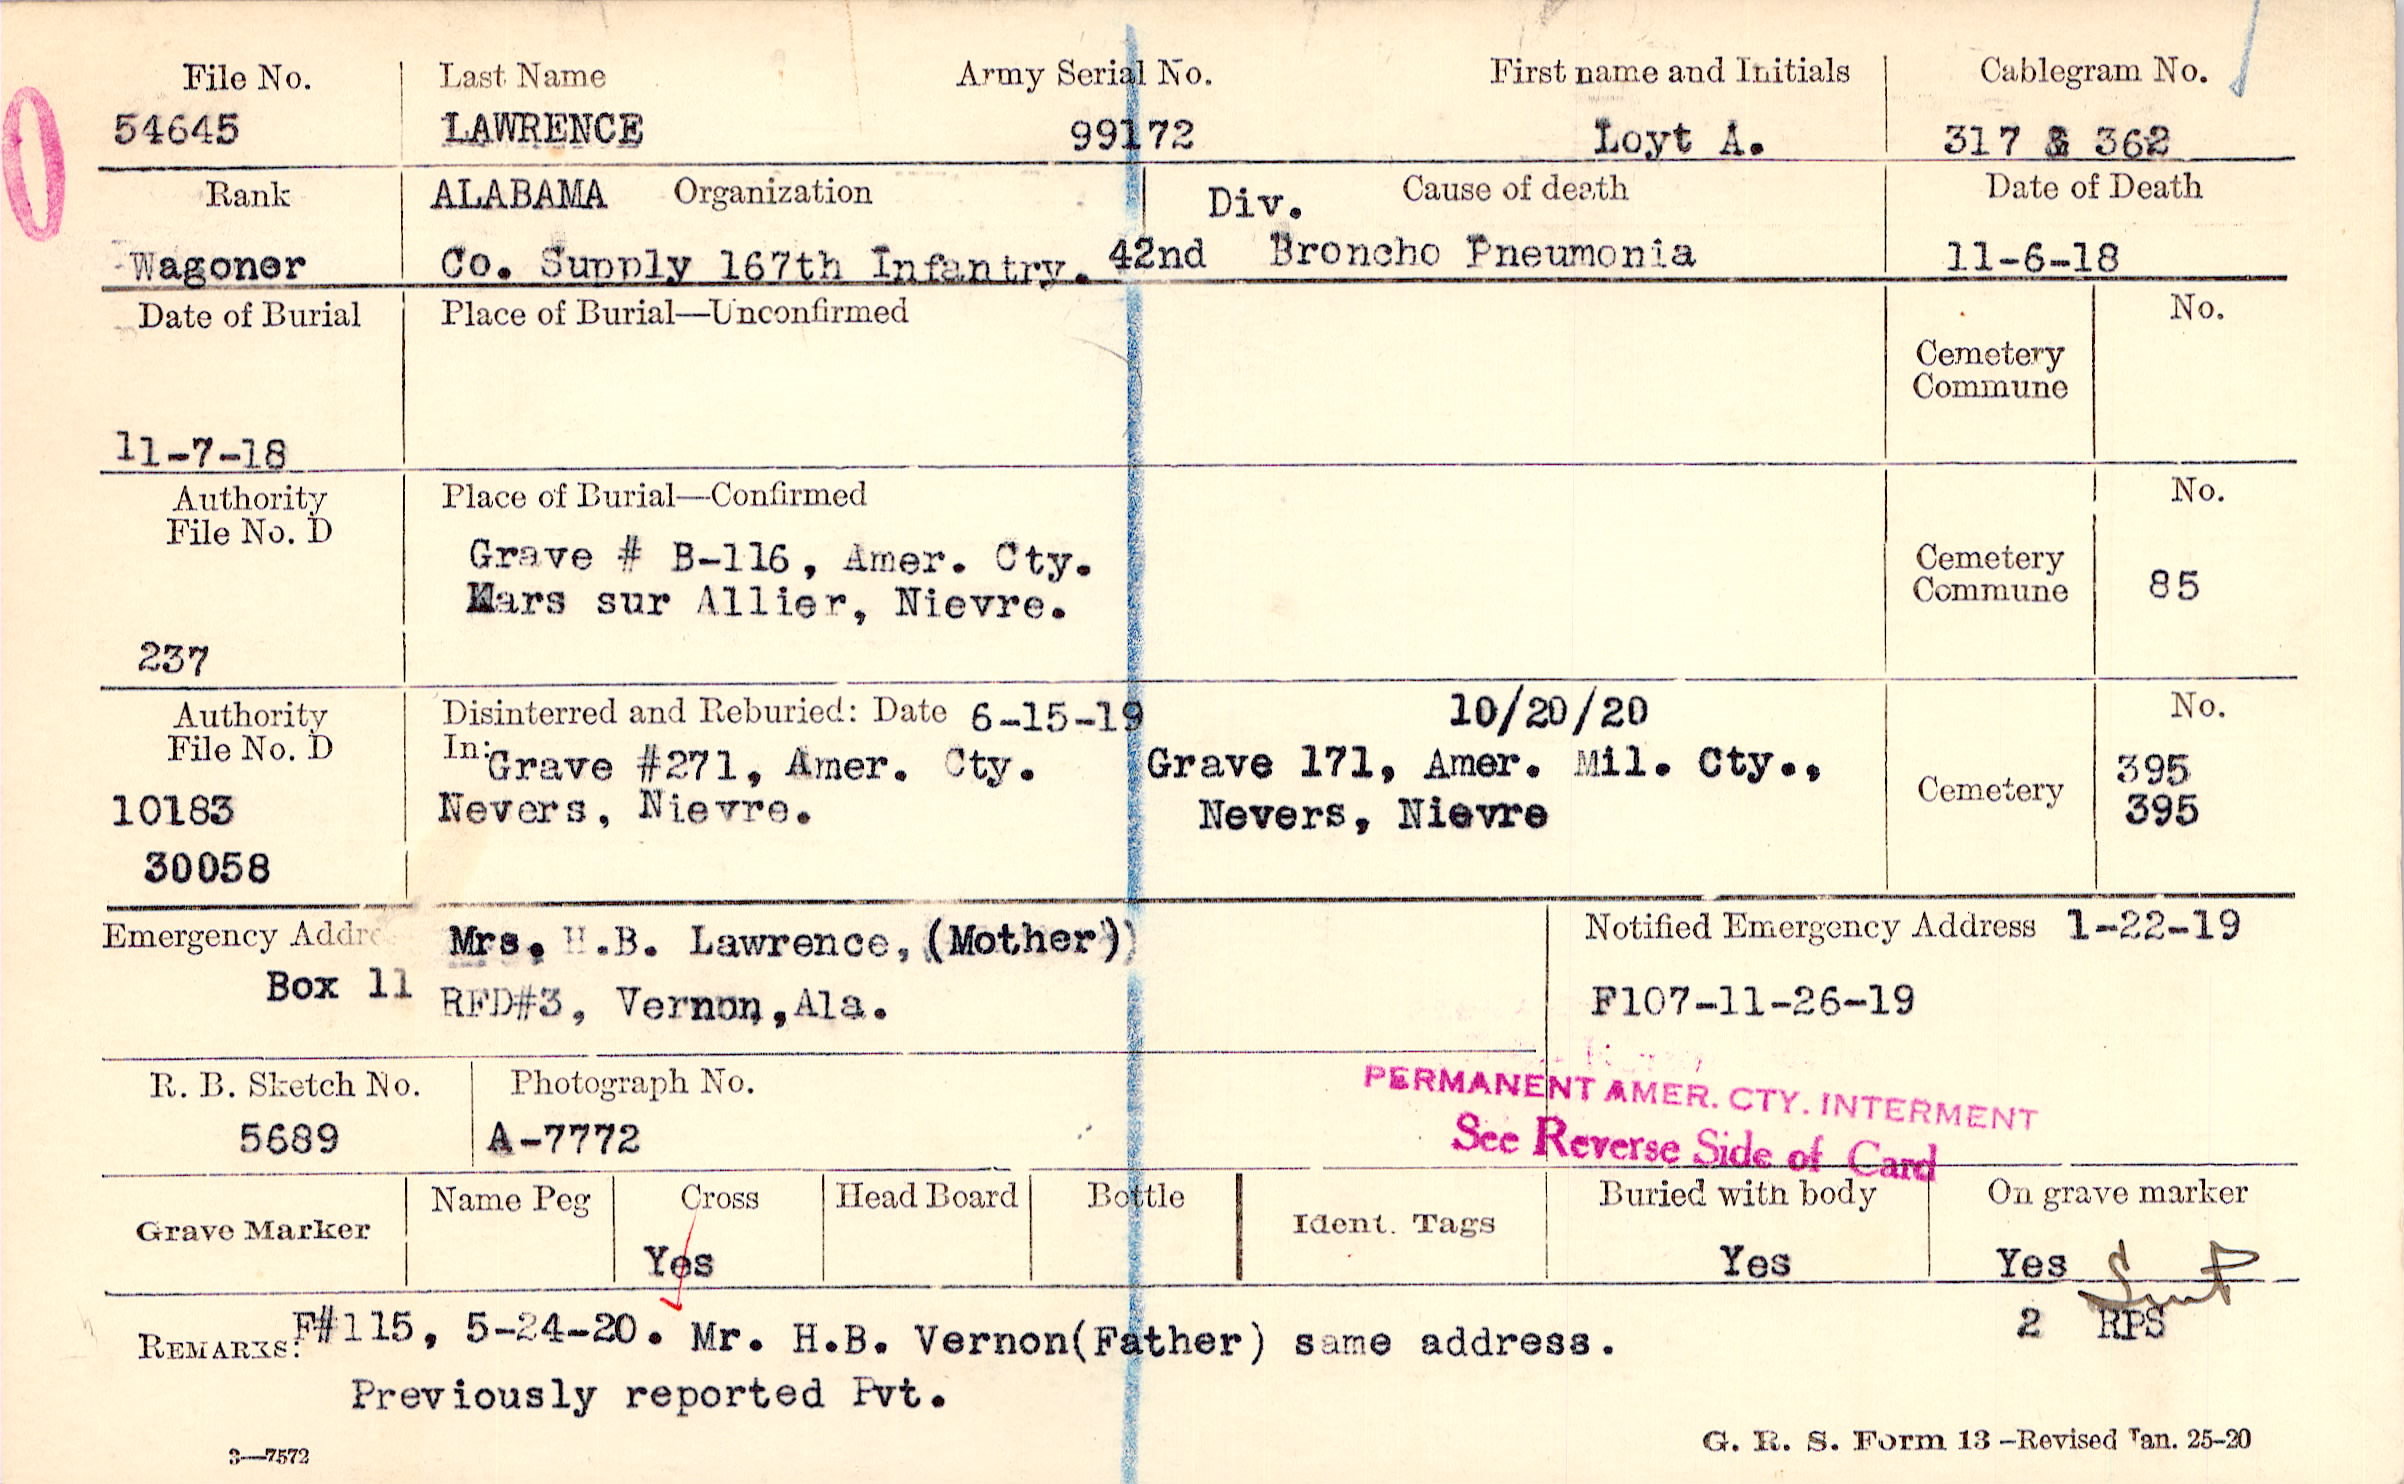 File No. Last Name Army Serial No. First name and Initials Cablegram No.
54645 LAWRENCE 99172 Loyt A. 317 & 362
Rank ALABAMA Organization Div. Cause of death Date of Death
Wagoner Co. Supply 167th Infantry. 42nd Broncho Pneumonia 11-6-18
Date of Burial Place of Burial—Unconfirmed No.
Cemetery
Commune
11-7-18
Authority Place of Burial—Confirmed No.
File No. D
Grave # B-116, Amer. Cty. Cemetery
Mars sur Allier, Nievre. Commune 85
237
Authority Disinterred and Reburied: Date 6-15-19 10/20/20 No.
File No. D In: Grave #271, Amer. Cty. Grave 171, Amer. Mil. Cty., Cemetery 395
10183 Nevers, Nievre. Nevers, Nievre 395
30058
Emergency Addre Mrs. H.B. Lawrence, (Mother) Notified Emergency Address 1-22-19
Box 11 RFD#3, Vernon, Ala. F107-11-26-19
R. B. Sketch No. Photograph No. PERMANENT AMER. CTY. INTERMENT
5689 A-7772 See Reverse Side of Card
Name Peg Cross Head Board Bottle Buried with body On grave marker
Grave Marker Ident. Tags
Yes Yes Yes
REMARKS: F#115, 5-24-20. Mr. H.B. Vernon(Father) same address. 2 RPS
Previously reported Pvt.
3—7572 G. R. S. Form 13 –Revised Jan. 25-20